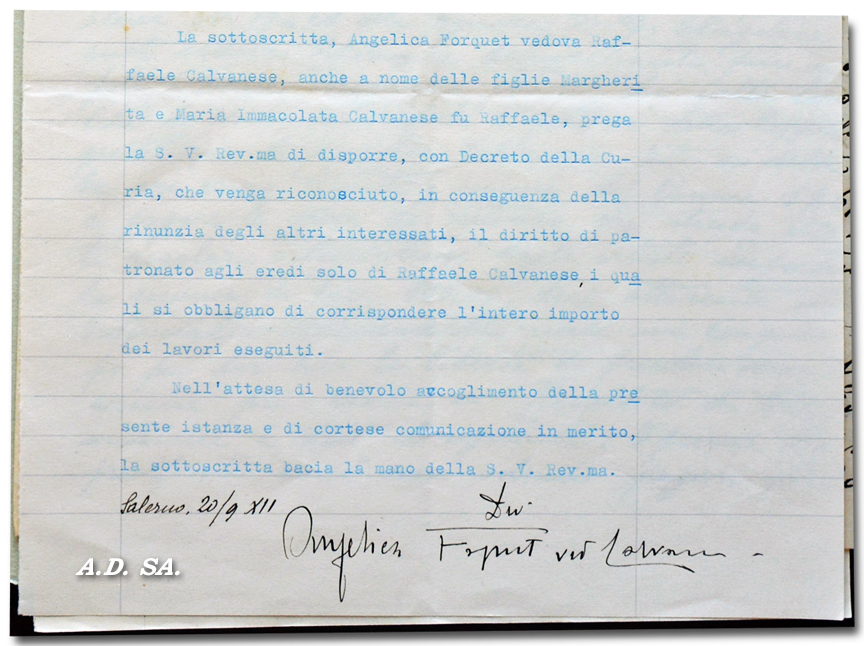 La sottoscritta, Angelica Forquet vedova Raf-
faele Calvanese, anche a nome delle figlie Margheri
ta e Maria Immacolata Calvanese fu Raffaele, prega
la S. V. Rev.ma di disporre, con Decreto della Cu-
ria, che venga riconosciuto, in conseguenza della
rinunzia degli altri interessati, il diritto di pa-
tronato agli eredi solo di Raffaele Calvanese, i qua
li si obbligano di corrispondere l'intero importo
dei lavori eseguiti.
Nell'attesa di benevolo accoglimento della pre
sente istanza e di cortese comunicazione in merito,
la sottoscritta bacia la mano della S. V. Rev.ma.
Salerno, 20/9 XII
Angelica Forquet ved Calvanese
A.D. SA.